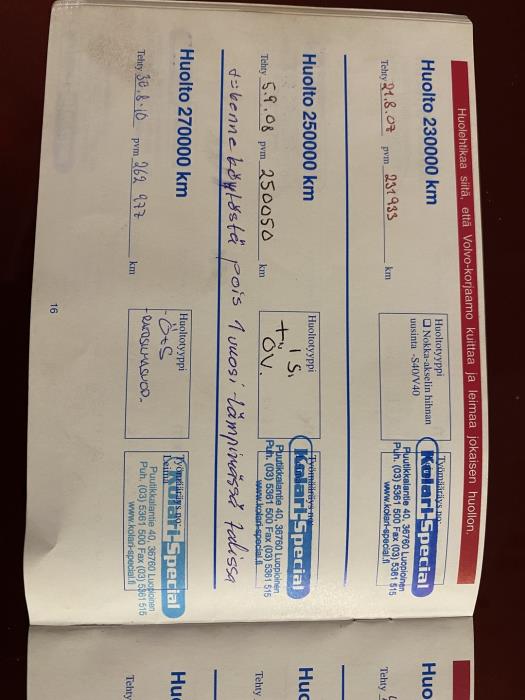 Huolehtikaa siitä, että Volvo-korjaamo kuittaa ja leimaa jokaisen huollon.
Huolto 230000 km
Tehty 21.8.07 pvm 231933 km
Huoltotyyppi
☐ Nokka-akselin hihnan
uusinta -S40/V40
Työmääräys no:
Kolari-Special
Puutikkalantie 40, 36760 Luopioinen
Puh. (03) 5361 500 Fax (03) 5361 515
www.kolari-special.fi
Huolto 250000 km
Tehty 5.9.08 pvm 250050 km
Huoltotyyppi
1 S.
+
ÖV.
Työmääräys no:
Kolari-Special
Puutikkalantie 40, 36760 Luopioinen
Puh. (03) 5361 500 Fax (03) 5361 515
www.kolari-special.fi
pois 1 vuosi - lämpimässä talissa
Huolto 270000 km
Tehty 30.8.10 pvm 262 977 km
Huoltotyyppi
-Ö+S
Työmääräys no:
Leima
Kolari-Special
Puutikkalantie 40, 36760 Luopioinen
Puh. (03) 5361 500 Fax (03) 5361 515
www.kolari-special.fi
16
Huo
Tehty
Huo
Tehty
Huo
Tehty